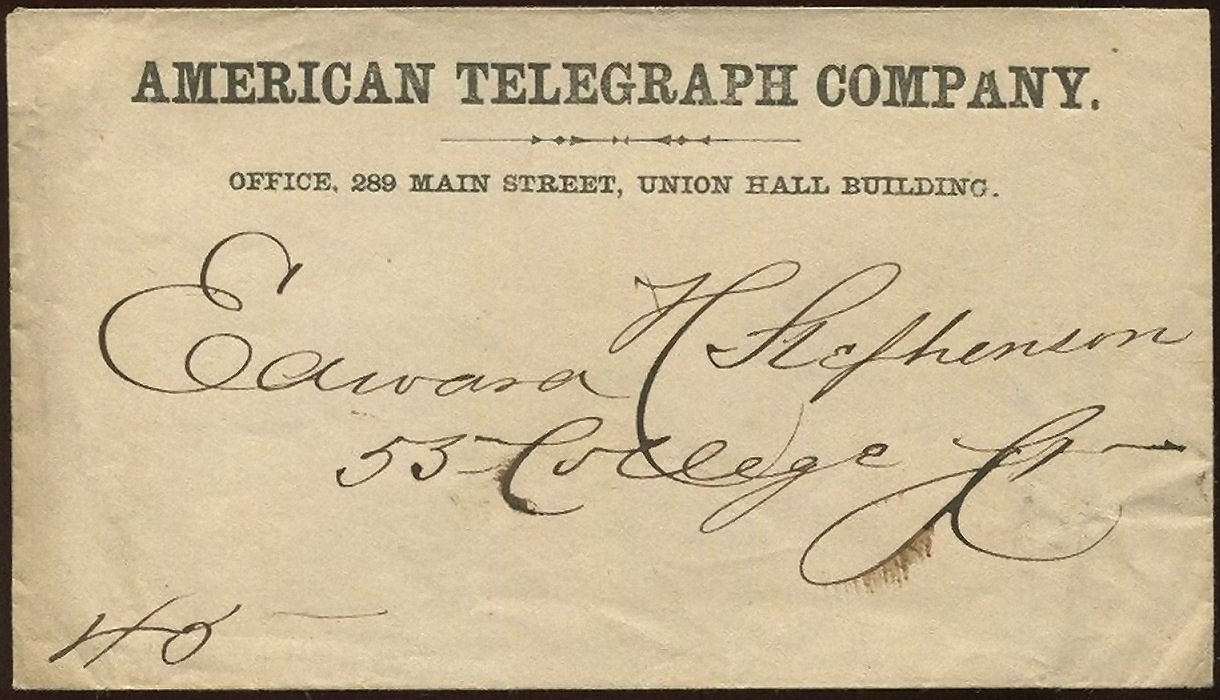 AMERICAN TELEGRAPH COMPANY.
OFFICE, 289 MAIN STREET, UNION HALL BUILDING.
Edward H Stephenson
55 College St
40